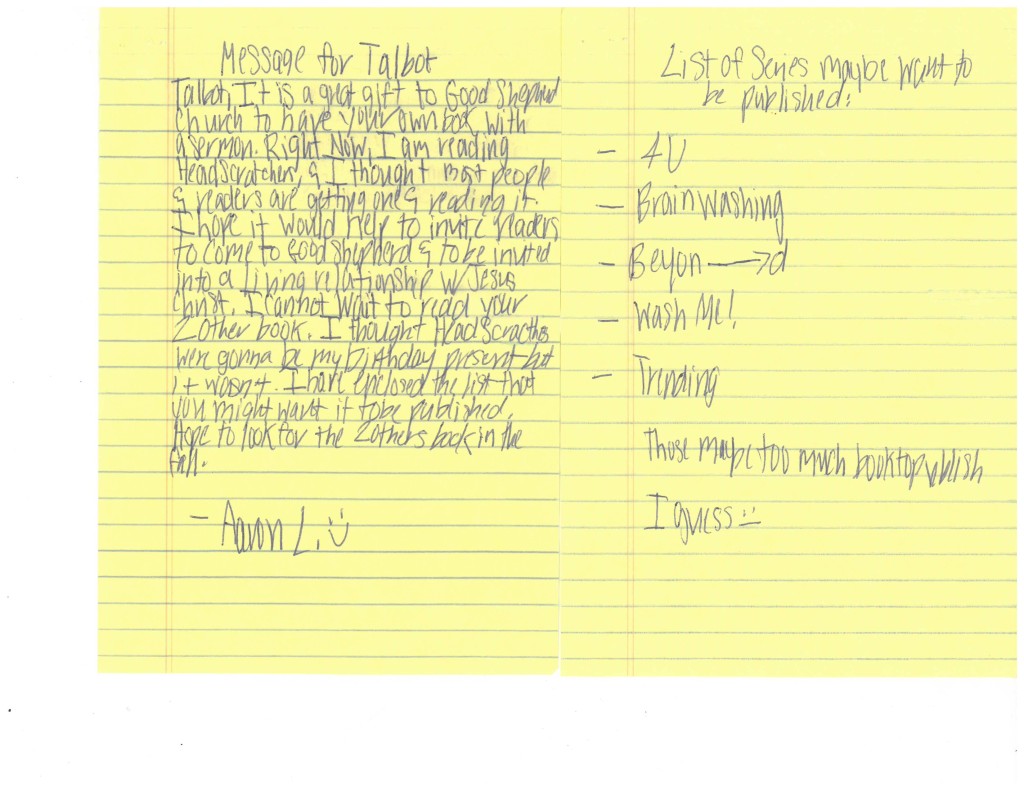 Message for Talbot
Talbot, It is a great gift to Good Shepherd
Church to have your own book with
a sermon. Right Now, I am reading
Head Scratchers, & I thought most people
& readers are getting one & reading it.
I hope it would help to invite readers
to come to Good Shepherd & to be invited
into a living relationship w/ Jesus
Christ. I cannot wait to read your
2 other book. I thought Head Scracthes
were gonna be my birthday present but
it wasn't. I have enclosed the list that
you might want it to be published.
Hope to look for the 2 others back in the
fall.
- Aaron L. :)
List of Series maybe want to
be published:
- 4U
- Brainwashing
- Beyon→d
- Wash Me!
- Trending
Those maybe too much book to publish
I guess